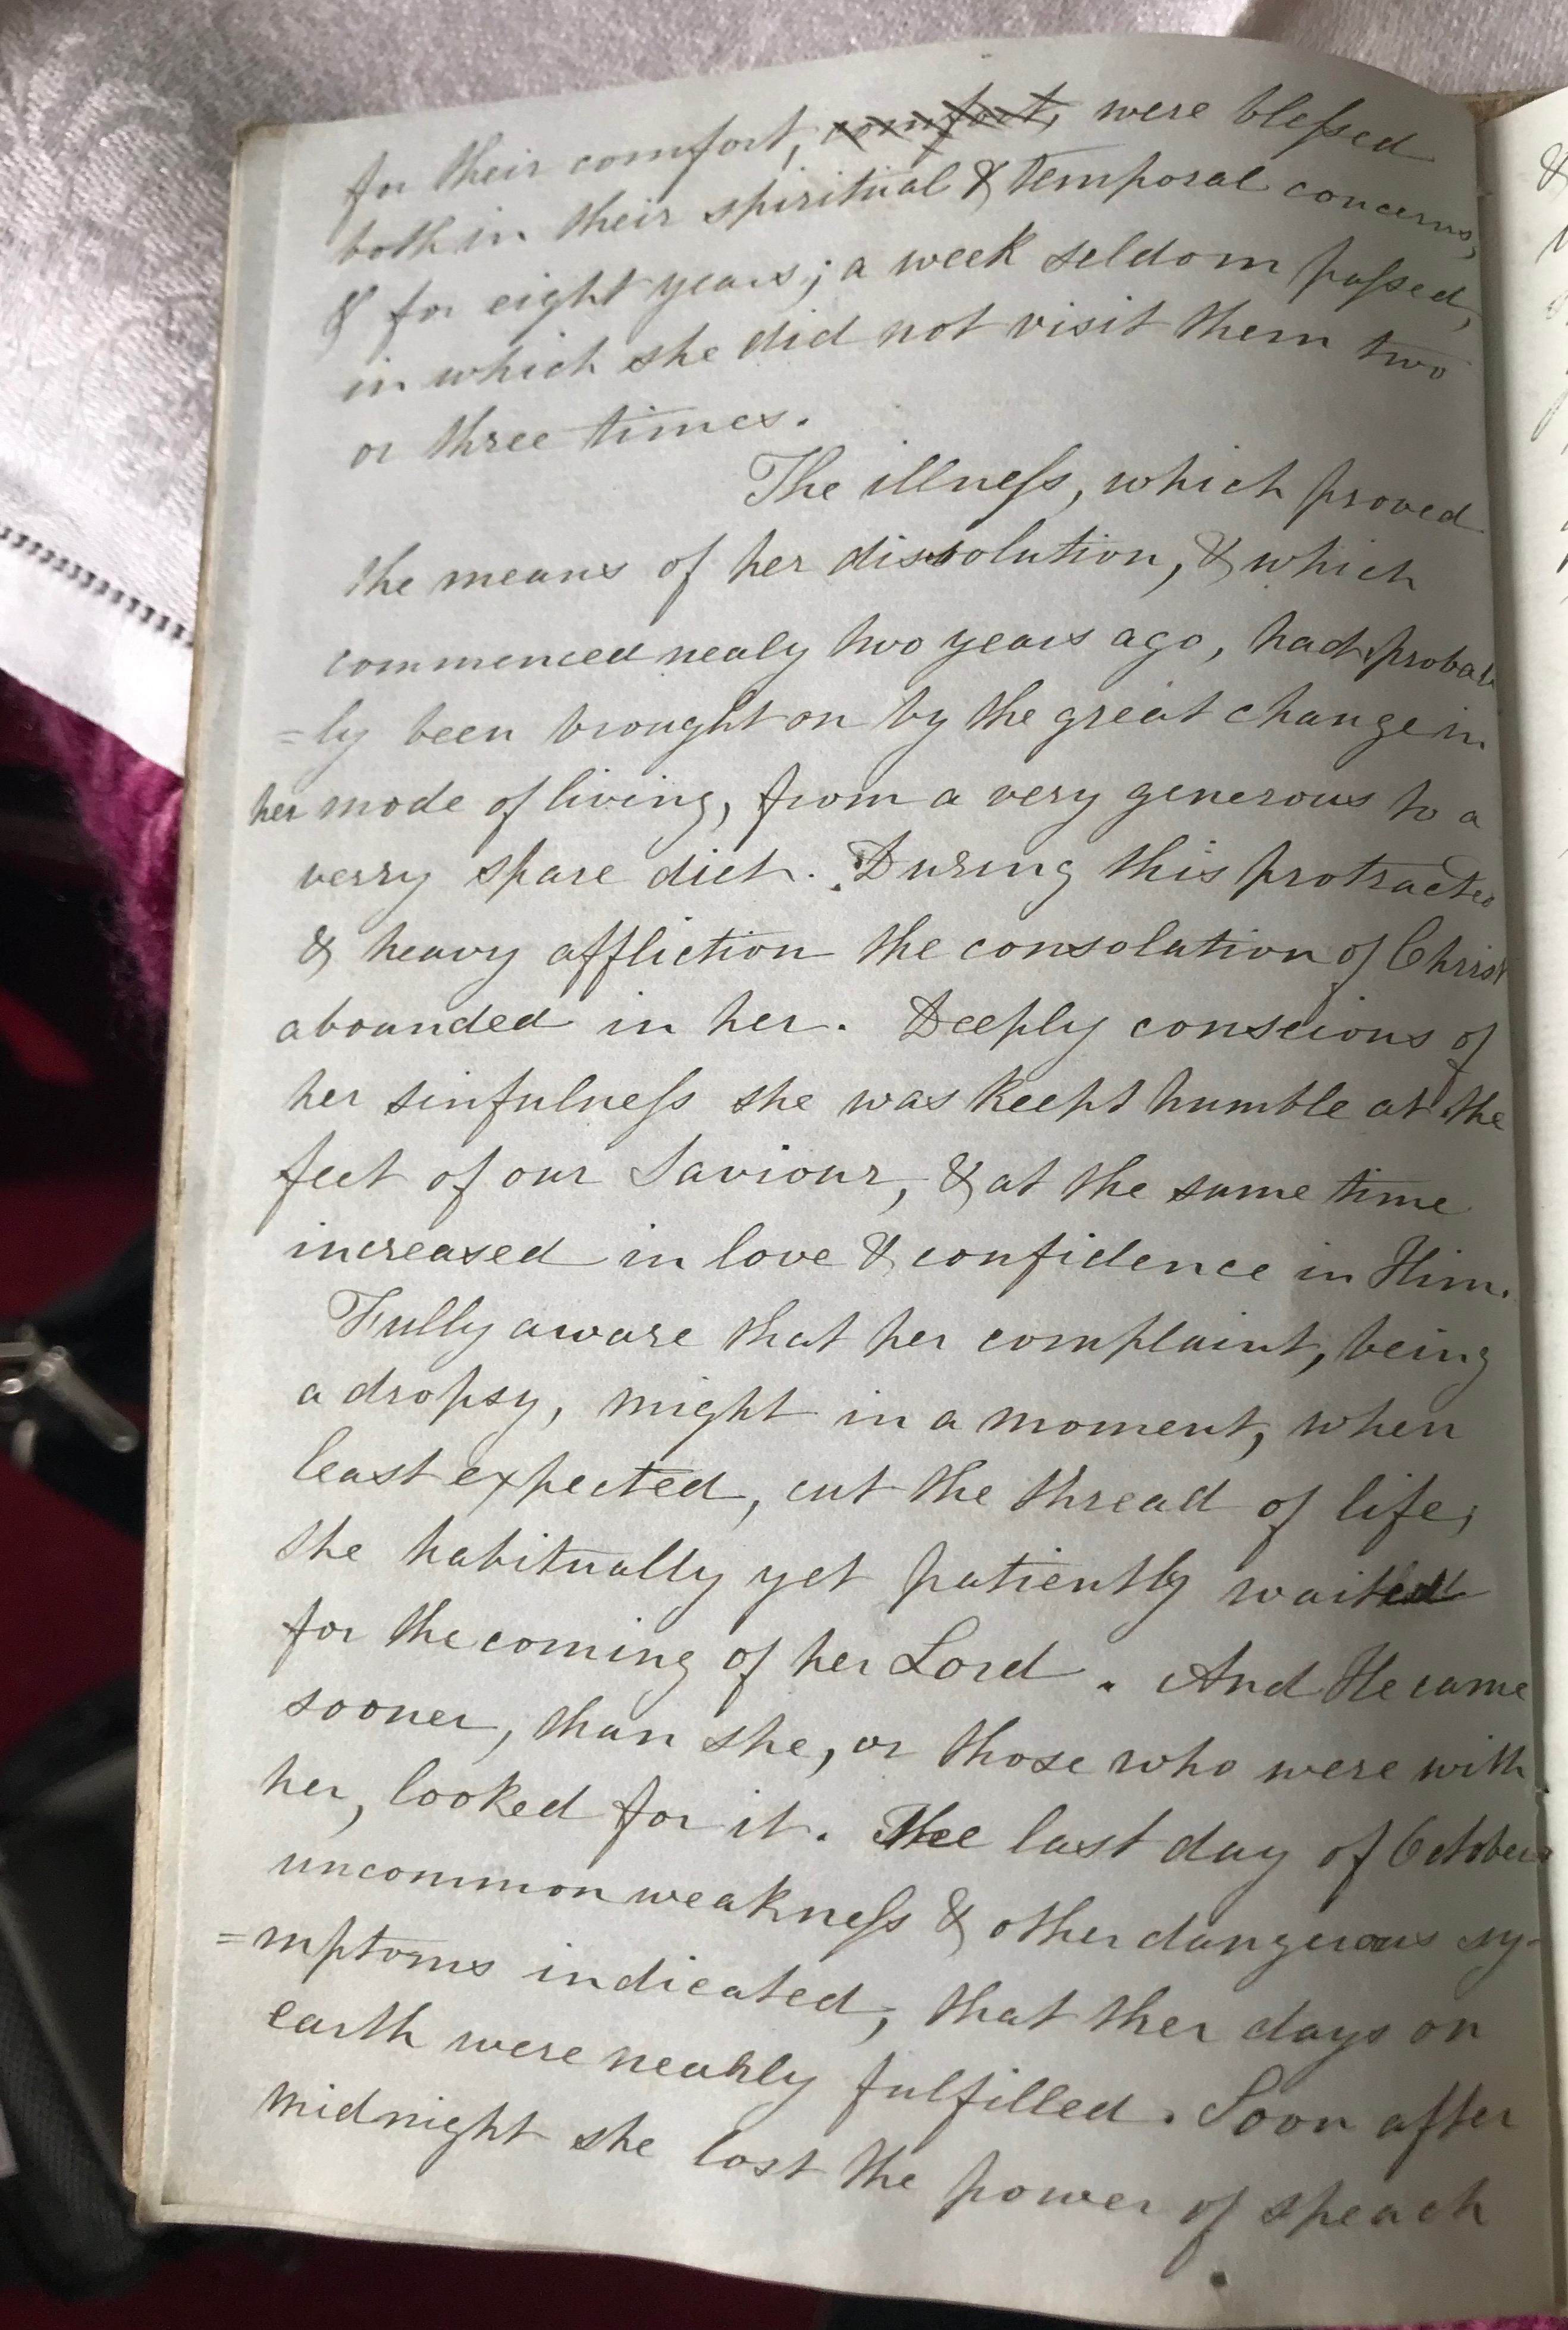 for their comfort, comfort, were blessed
both in their spiritual & temporal concerns,
& for eight years; a week seldom passed,
in which she did not visit them two
or three times.
The illness, which proved
the means of her dissolution, & which
commenced nealy two years ago, had probab
=ly been brought on by the great change in
her mode of living, from a very generous to a
verry spare diet. During this protracted
& heavy affliction the consolation of Christ
abounded in her. Deeply conscious of
her sinfulness she was keept humble at the
feet of our Saviour, & at the same time
increased in love & confidence in Him.
Fully aware that her complaint, being
a dropsy, might in a moment, when
least expected, cut the thread of life,
she habitually yet patiently waited
for the coming of her Lord. And He came
sooner, than she, or those who were with
her, looked for it. The last day of October
uncommon weakness & other dangerous sy-
=mptoms indicated, that ther days on
earth were neahly fulfilled. Soon after
midnight she lost the power of speach